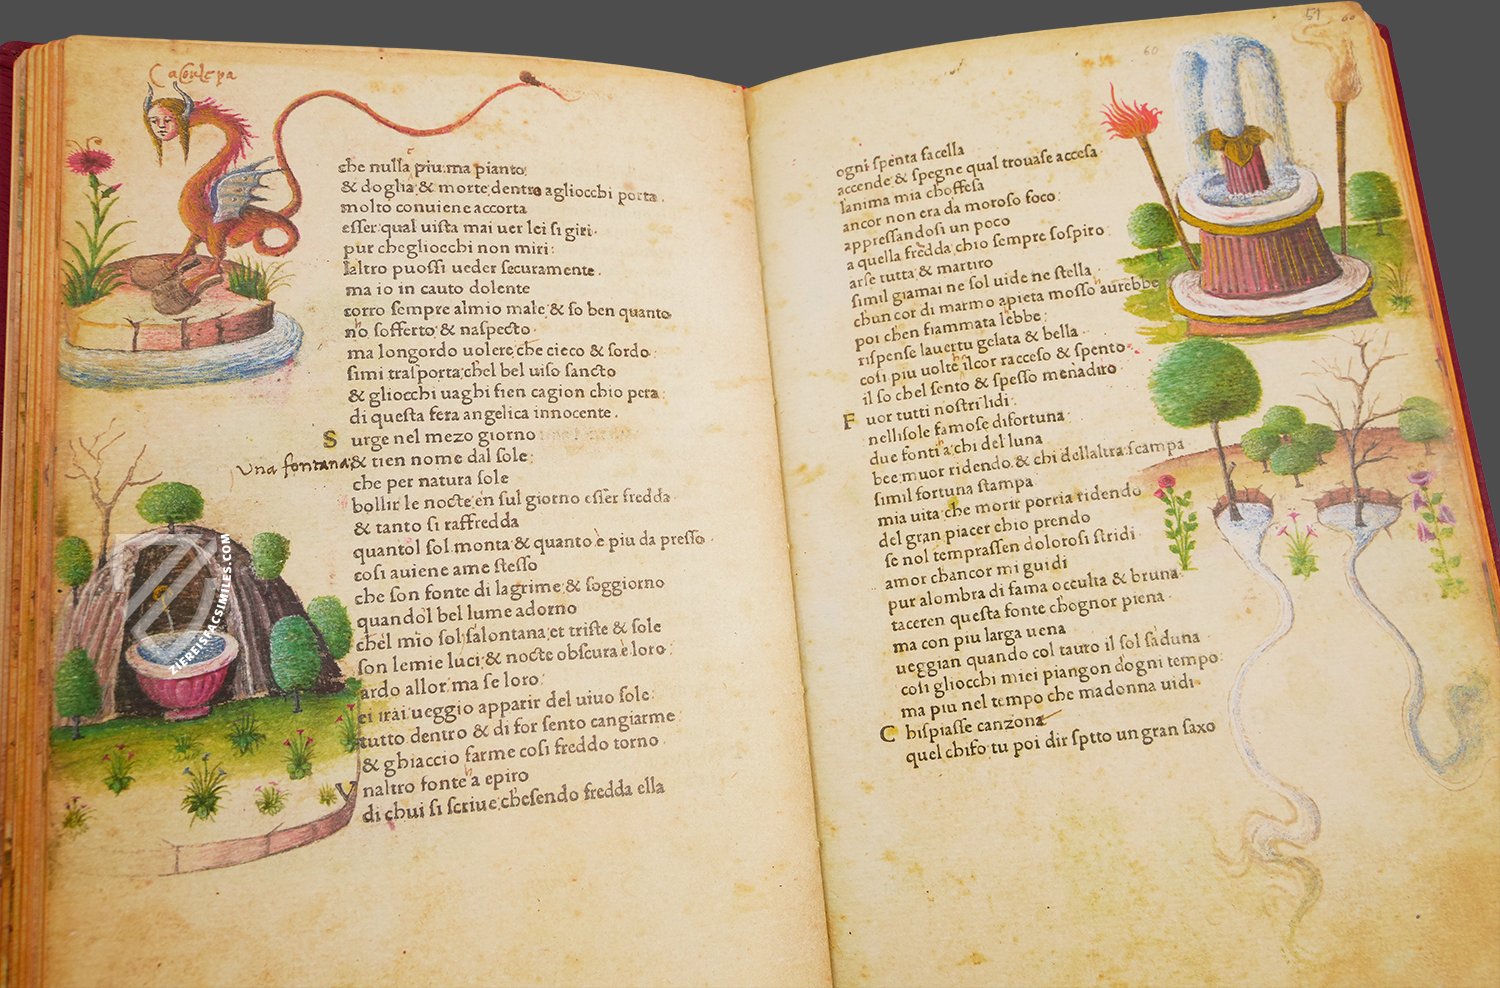 Catoulepa
che nulla piu: ma pianto
& doglia & morte dentro agliocchi porta.
molto conuiene accorta
esser qual uista mai uer lei si giri·
pur chegliocchi non miri:
laltro puossi ueder securamente.
ma io in cauto dolente
corro sempre almio male; & so ben quanto
no sofferto & naspecto·
ma longordo uolere che cieco & sordo
simi trasporta; chel bel uiso sancto
& gliocchi uaghi fien cagion chio pera:
di questa fera angelica innocente.
S urge nel mezo giorno
Vna fontana & tien nome dal sole:
che per natura sole
bollir le nocte, en sul giorno esser fredda·
& tanto si raffredda
quantol sol monta & quanto è piu da presso·
cosi auiene ame stesso
che son fonte di lagrime & soggiorno
quandol bel lume adorno
chel mio sol salontana; et triste & sole
son lemie luci & nocte obscura è loro:
ardo allor: ma se loro
ei rai ueggio apparir del uiuo sole:
tutto dentro & di for sento cangiarme
& ghiaccio farme cosi freddo torno·
V naltro fonte ha epiro
di chui si scriue; chesendo fredda ella
51
60
60
ogni spenta facella
accende & spegne qual trouase accesa·
lanima mia choffesa
ancor non era da moroso foco:
appressandosi un poco
a quella fredda chio sempre sospiro:
arse tutta & martiro
simil giamai ne sol uide ne stella·
chun cor di marmo apieta mosso aurebbe
poi chen fiammata lebbe:
rispense lauertu gelata & bella·
cosi piu uolte ha ilcor racceso & spento·
il so chel sento & spesso menadiro·
F uor tutti nostri lidi·
nellisole famose difortuna·
due fonti ha chi del luna
bee muor ridendo & chi dellaltra scampa
simil fortuna stampa
mia uita che morir porria ridendo
del gran piacer chio prendo
se nol temprassen dolorosi stridi·
amor chancor mi guidi
pur alombra di fama occulta & bruna·
taceren questa fonte chognor piena·
ma con piu larga uena
ueggian quando col tauro il sol saduna
cosi gliocchi miei piangon dogni tempo:
ma piu nel tempo che madonna uidi·
C hispiasse canzona
quel chifo: tu poi dir sotto un gran saxo
ZIEREIFACSIMILES.COM